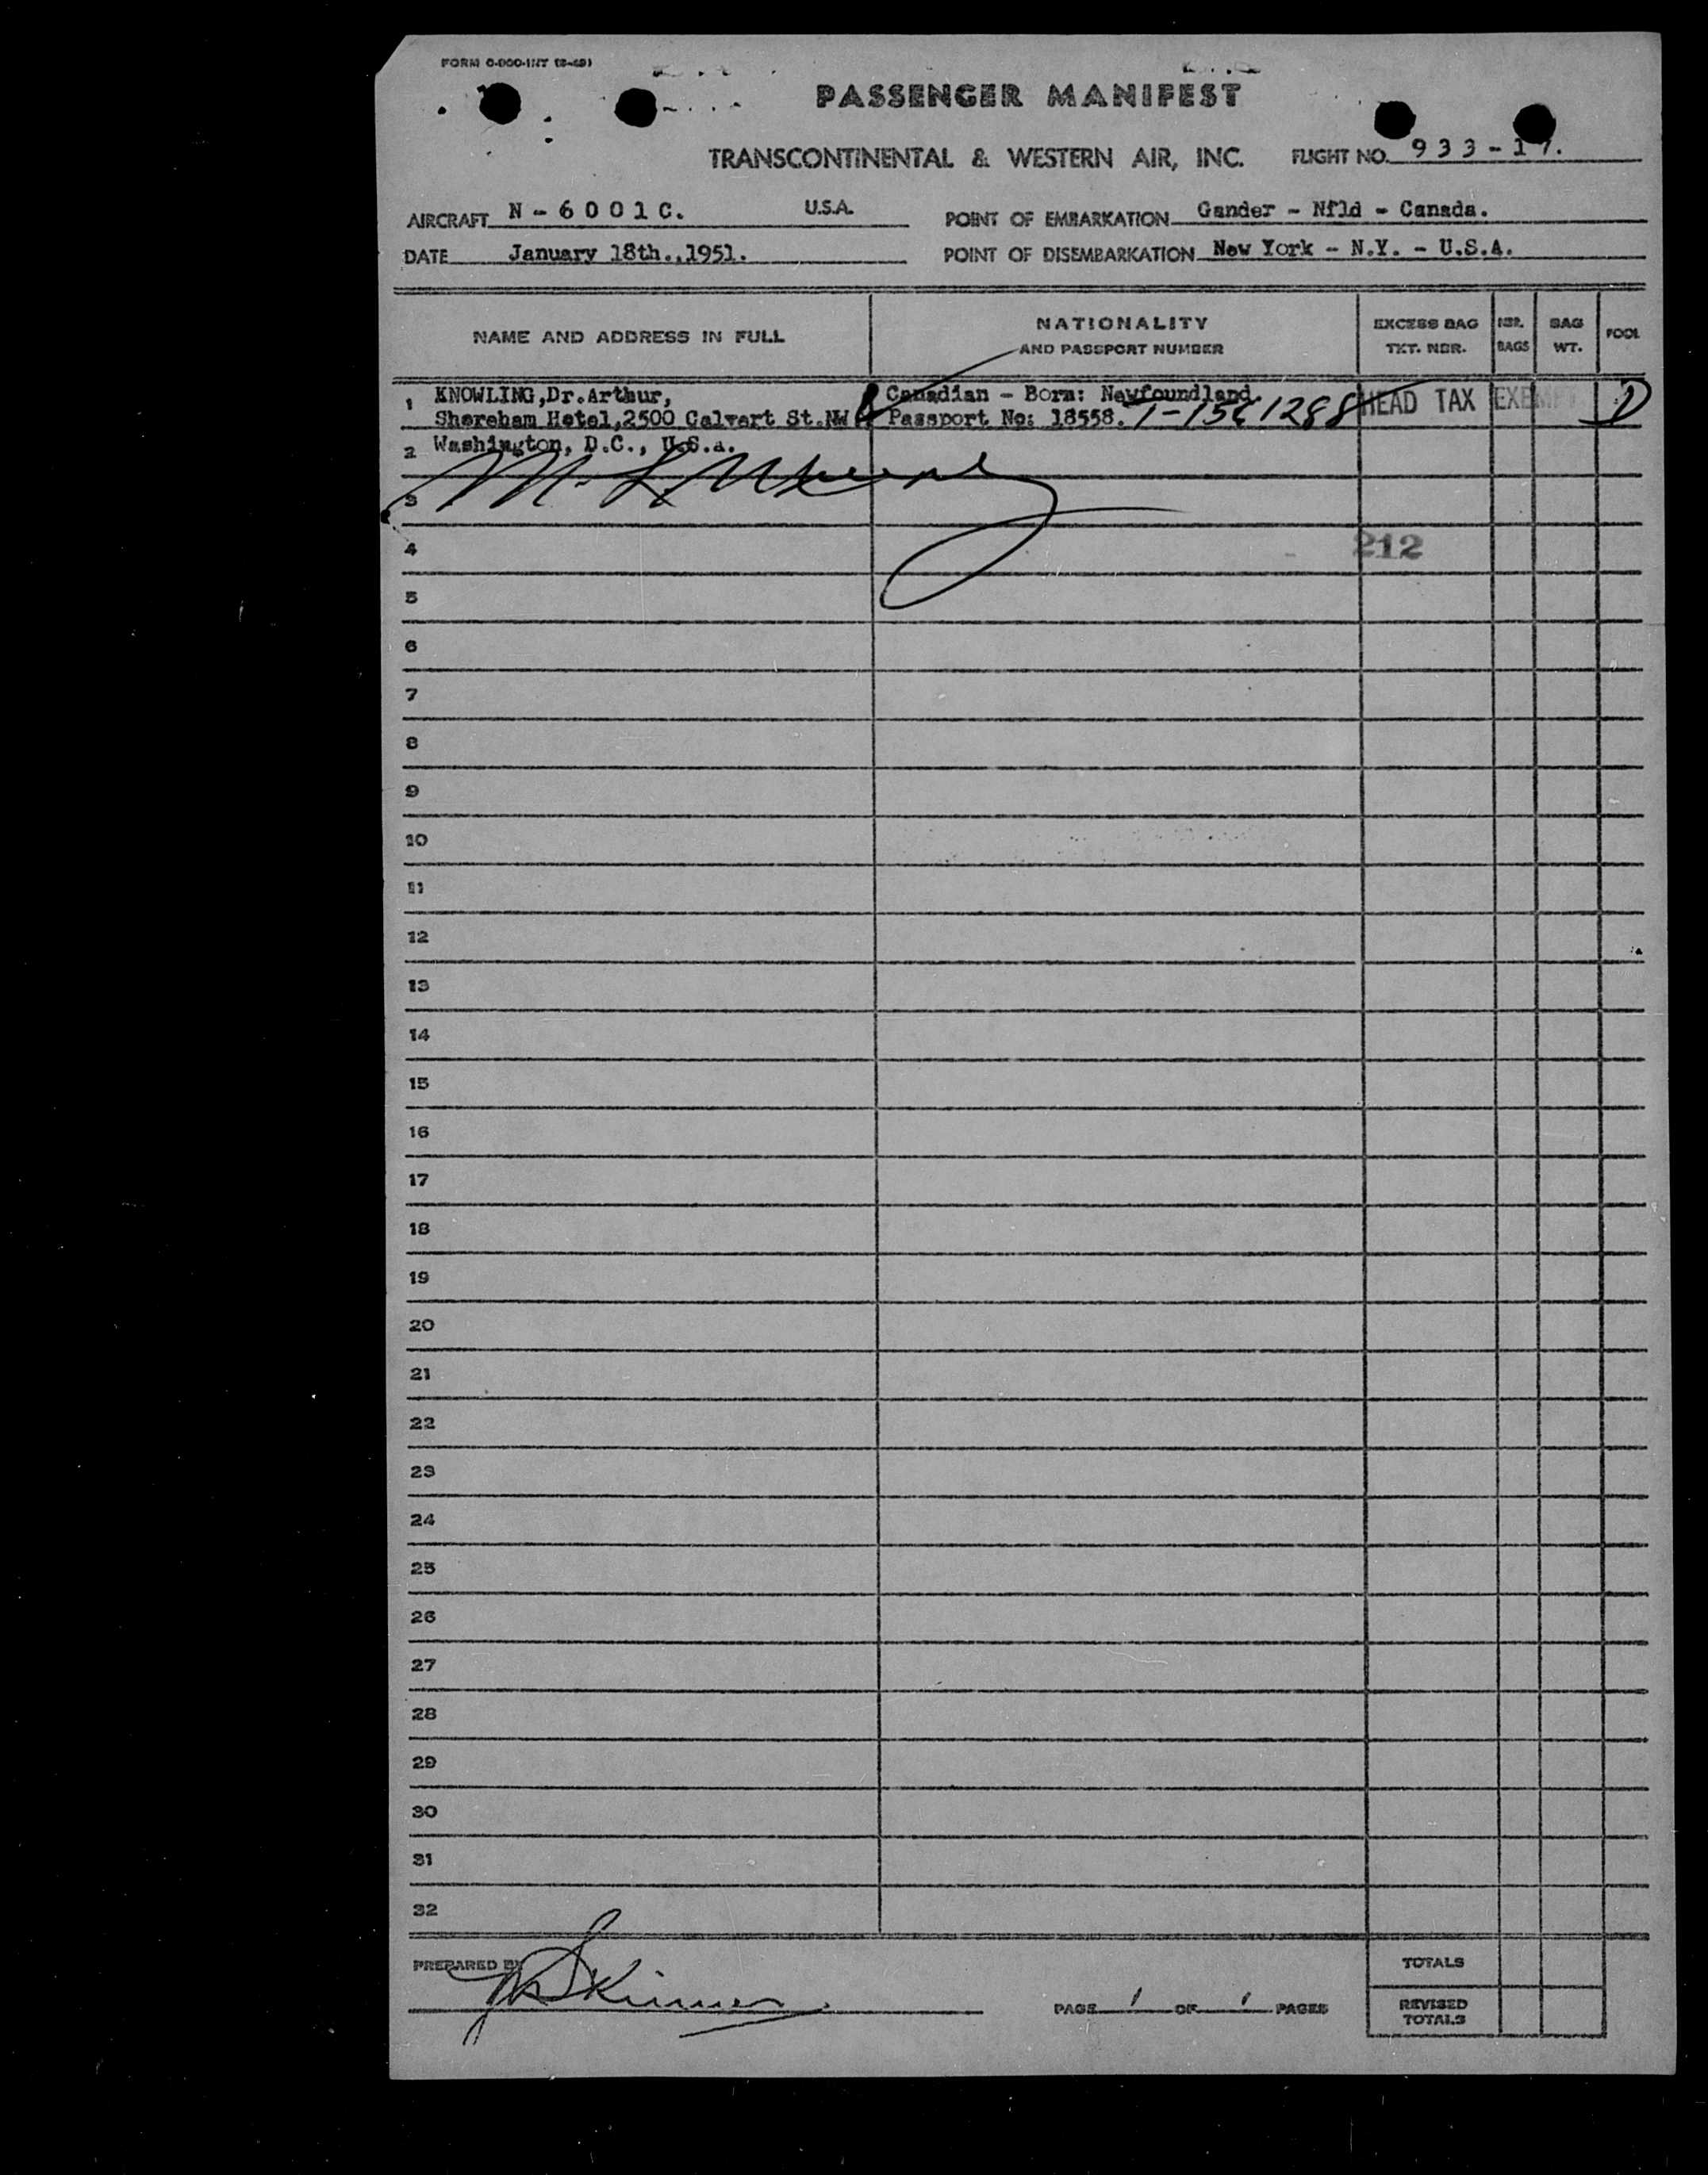 FORM O-900-INT (8-49)
PASSENGER MANIFEST
TRANSCONTINENTAL & WESTERN AIR, INC. FLIGHT NO. 933-17.
AIRCRAFT N-6001C. U.S.A. POINT OF EMBARKATION Gander - Nfld - Canada.
DATE January 18th.,1951. POINT OF DISEMBARKATION New York - N.Y. - U.S.A.
NAME AND ADDRESS IN FULL
NATIONALITY
AND PASSPORT NUMBER
EXCESS BAG
TKT. NBR.
NBR.
BAGS
BAG
WT.
POOL
1 KNOWLING,Dr.Arthur, Canadian - Born: Newfoundland. HEAD TAX EXEMPT D
Shoreham Hotel,2500 Calvert St.NW Passport No: 18558.
2 Washington, D.C., U.S.A.
3
4 212
5
6
7
8
9
10
11
12
13
14
15
16
17
18
19
20
21
22
23
24
25
26
27
28
29
30
31
32
PREPARED BY Skinner
PAGE 1 OF 1 PAGES
TOTALS
REVISED
TOTALS